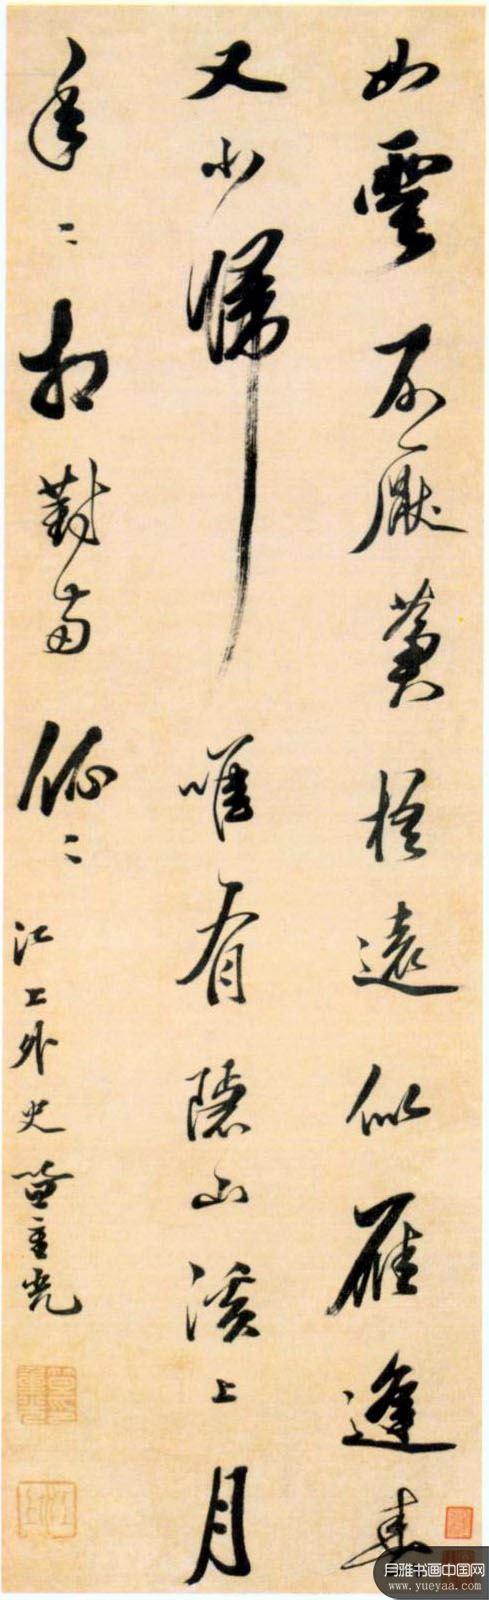 如雲不厭蒼梧遠似雁逢春
又北歸唯有隱山溪上月
年〻相對兩依〻江上外史笪重光
月雅书画中国网
www.yueyaa.com